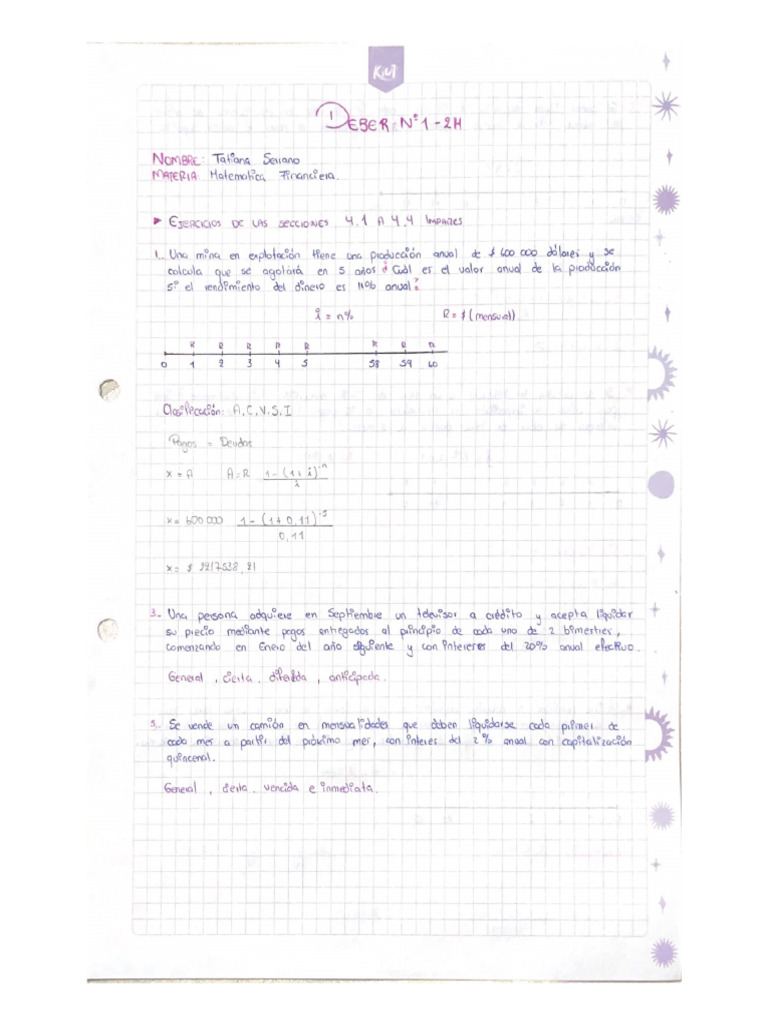 KIUT
DEBER N°1 - 2H
NOMBRE: Tatiana Serrano
MATERIA: Matematica Financiera.
▸ EJERCICIOS DE LAS SECCIONES 4.1 A 4.4 IMPARES
1. Una mina en explotación tiene una producción anual de $ 600 000 dólares y se
calcula que se agotará en 5 años ¿ Cuál es el valor anual de la producción
si el rendimiento del dinero es 11% anual?
i = 11% R = $ (mensual)
R R R R R R R R
0 1 2 3 4 5 58 59 60
Clasificación: A, C, V, S, I
Pagos = Deudas
x = A A = R 1 - (1 + i)^-n / i
x = 600 000 1 - (1 + 0,11)^-5 / 0,11
x = $ 2217538,21
3. Una persona adquiere en Septiembre un televisor a crédito y acepta liquidar
su precio mediante pagos entregados al principio de cada uno de 2 bimestres,
comenzando en Enero del año siguiente y con intereses del 20% anual efectivo.
General , cierta , diferida , anticipada.
5. Se vende un camión en mensualidades que deben liquidarse cada primer de
cada mes a partir del próximo mes, con interes del 2% anual con capitalización
quincenal.
General , cierta , vencida e inmediata.